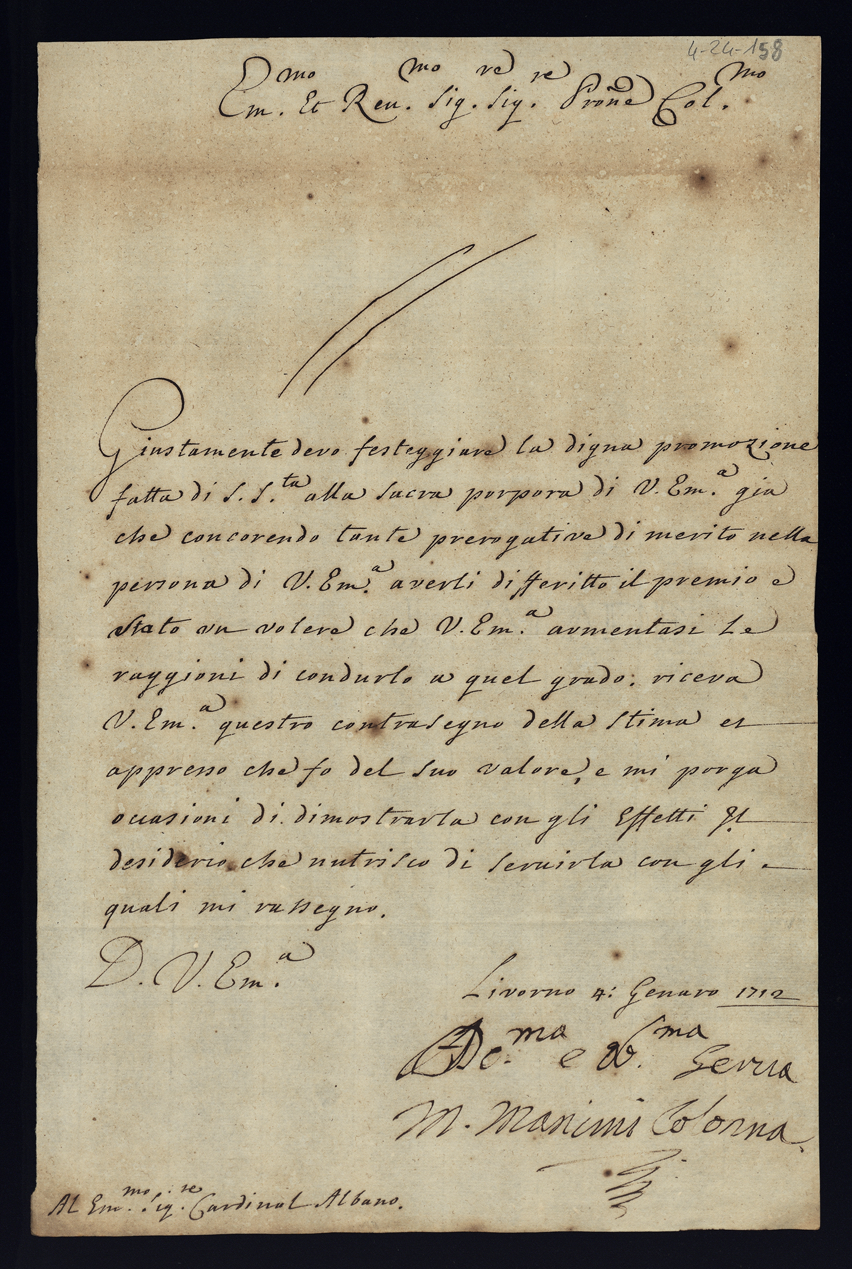 4-24-158
Em.mo Et Reu.mo Sig.re Sig.re Prone Col.mo
Giustamente devo festeggiare la digna promozione
fatta di S. S.ta alla sacra porpora di V. Em.a gia
che concorendo tante prerogative di merito nella
persona di V. Em.a averli differitto il premio e
stato un volere che V. Em.a aumentasi Le
raggioni di condurlo a quel grado: riceva
V. Em.a questro contrasegno della stima et
appresso che fo del suo valore, e mi porga
occasioni di dimostrarla con gli Effetti Il
desiderio che nutrisco di seruirla con gli
quali mi rassegno.
D. V. Em.a
Livorno 4: Genaro 1712
ma e ma Serua
M. Mancini Colonna
AL Em.mo Sig.re Cardinal Albano.